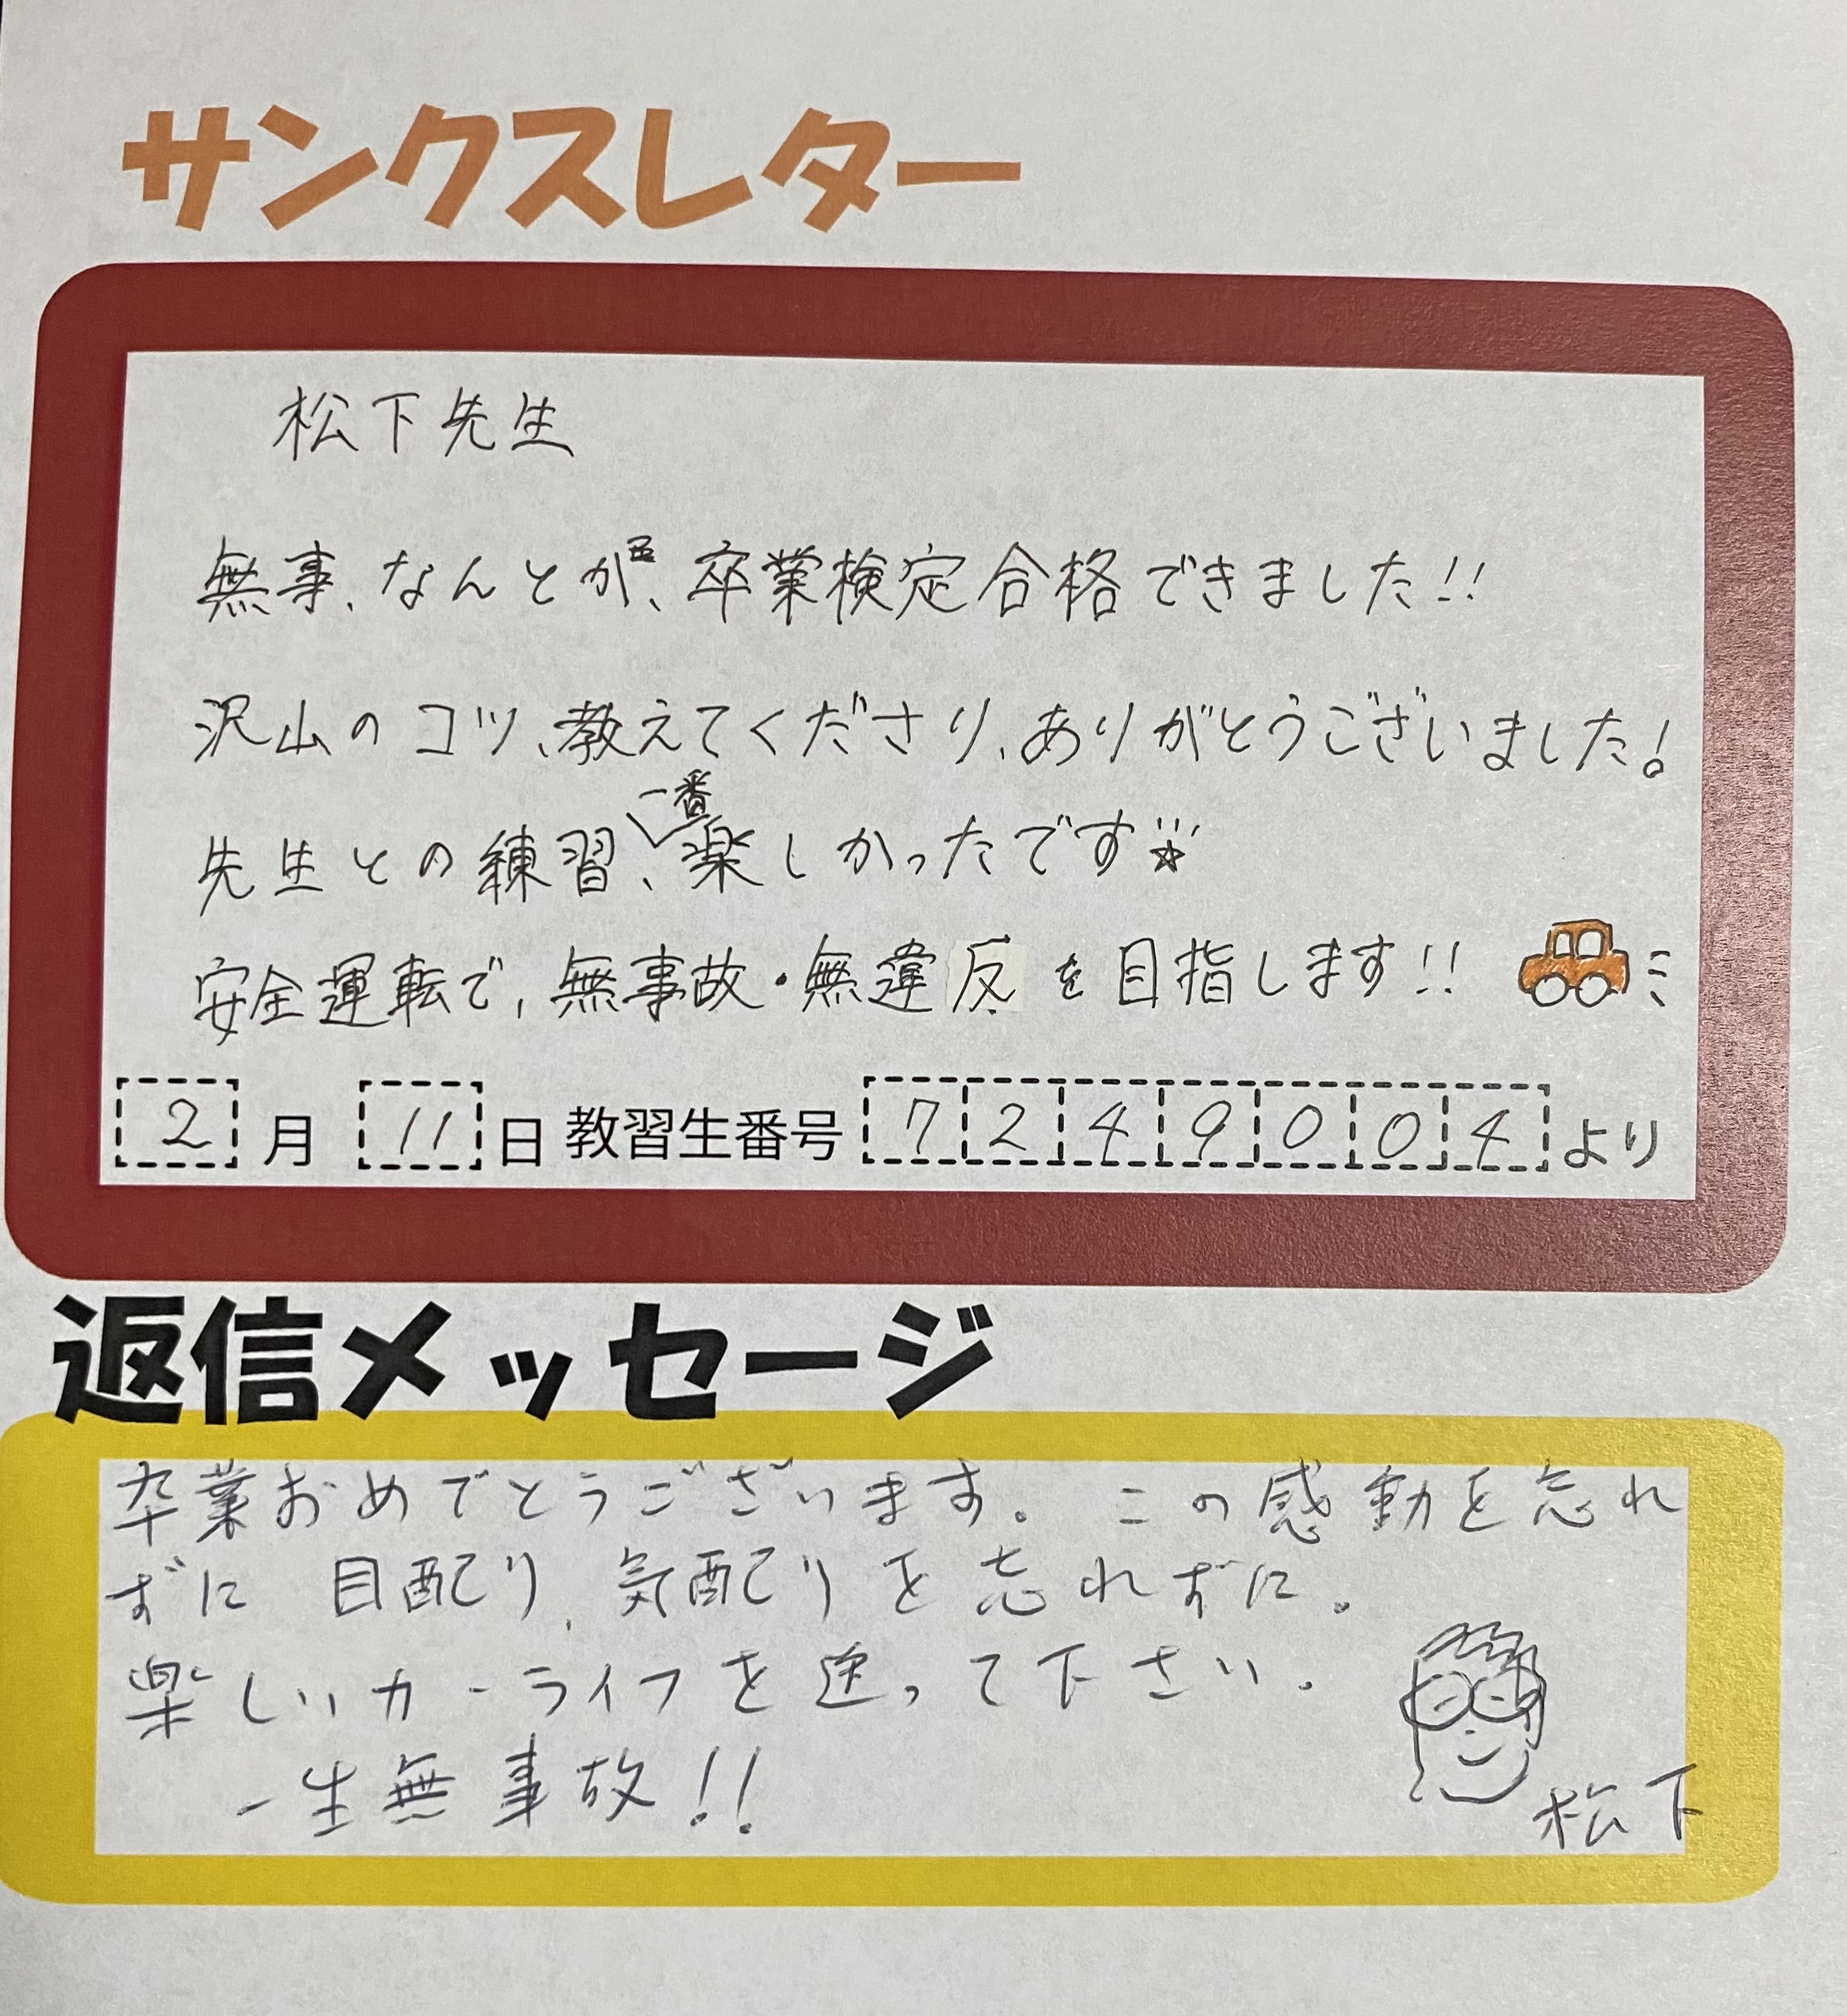 サンクスレター
松下先生
無事、なんとか、卒業検定合格できました!!
沢山のコツ、教えてくださり、ありがとうございました!
先生との練習、一番楽しかったです☆
安全運転で、無事故・無違反を目指します!!
2月11日教習生番号7249004より
返信メッセージ
卒業おめでとうございます。この感動を忘れ
ずに 目配り、気配りを忘れずに。
楽しいカーライフを送って下さい。
一生無事故!!
松下